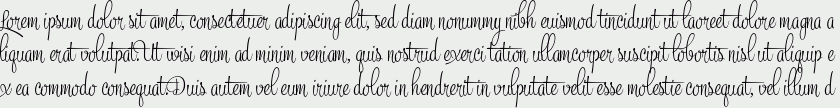 Lorem ipsum dolor sit amet, consectetuer adipiscing elit, sed diam nonummy nibh euismod tincidunt ut laoreet dolore magna a
liquam erat volutpat. Ut wisi enim ad minim veniam, quis nostrud exerci tation ullamcorper suscipit lobortis nisl ut aliquip e
x ea commodo consequat. Duis autem vel eum iriure dolor in hendrerit in vulputate velit esse molestie consequat, vel illum d